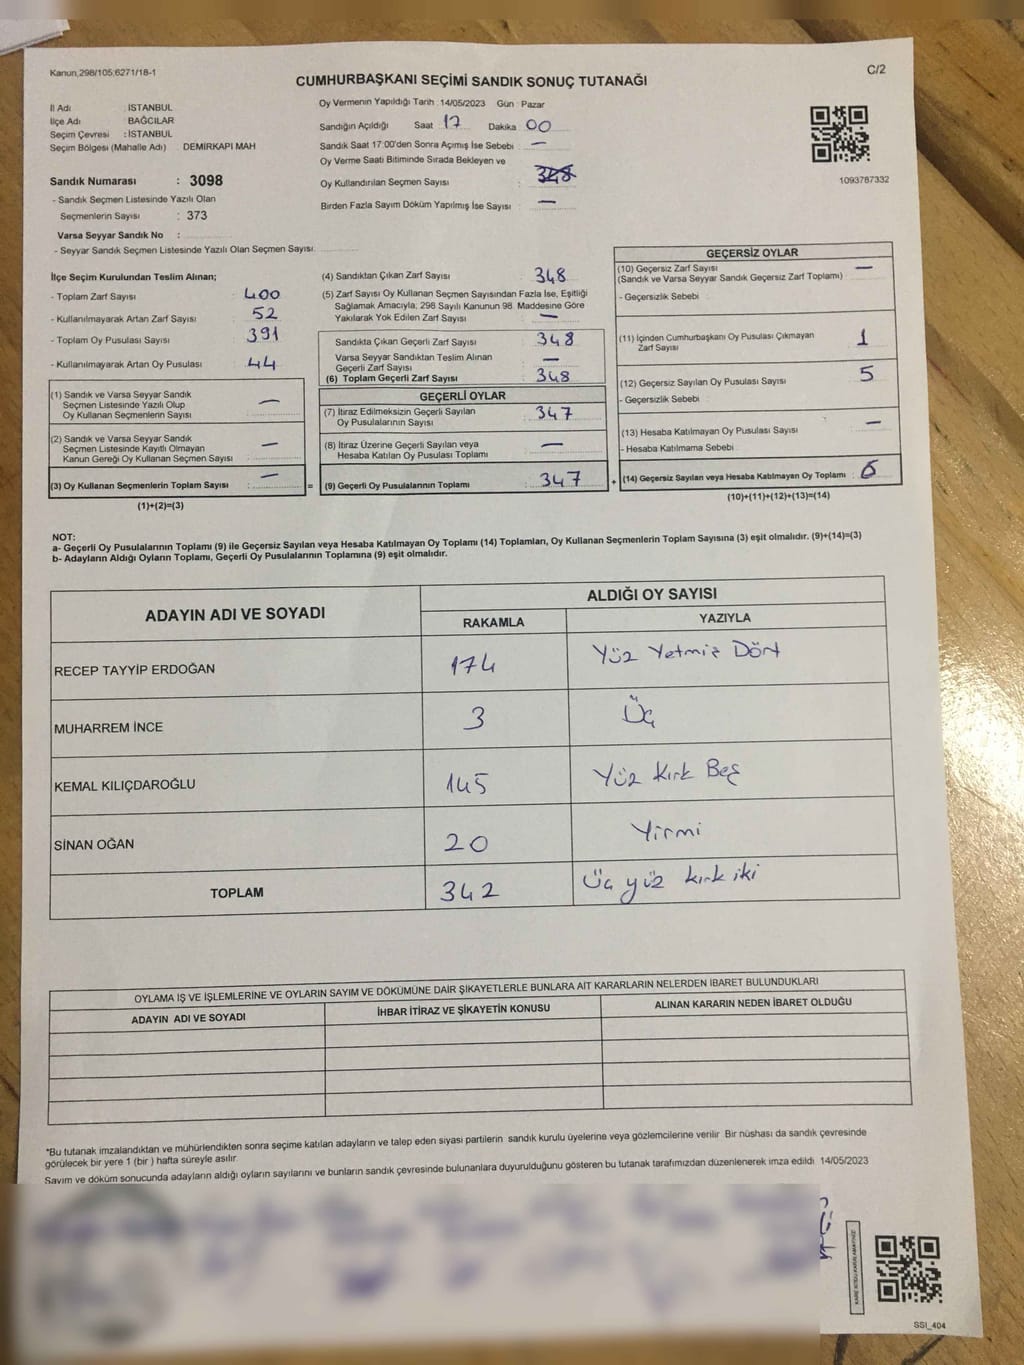 Kanun,298/105,6271/18-1
C/2
CUMHURBAŞKANI SEÇİMİ SANDIK SONUÇ TUTANAĞI
İl Adı : İSTANBUL
İlçe Adı : BAĞCILAR
Seçim Çevresi : İSTANBUL
Seçim Bölgesi (Mahalle Adı) DEMİRKAPI MAH
Sandık Numarası : 3098
- Sandık Seçmen Listesinde Yazılı Olan
Seçmenlerin Sayısı : 373
Varsa Seyyar Sandık No :
- Seyyar Sandık Seçmen Listesinde Yazılı Olan Seçmen Sayısı:
Oy Vermenin Yapıldığı Tarih : 14/05/2023 Gün : Pazar
Sandığın Açıldığı Saat 17 Dakika 00
Sandık Saat 17:00'den Sonra Açımış İse Sebebi : —
Oy Verme Saati Bitiminde Sırada Bekleyen ve
Oy Kullandırılan Seçmen Sayısı : 348
Birden Fazla Sayım Döküm Yapılmış İse Sayısı : —
1093787332
İlçe Seçim Kurulundan Teslim Alınan;
- Toplam Zarf Sayısı : 400
- Kullanılmayarak Artan Zarf Sayısı : 52
- Toplam Oy Pusulası Sayısı : 391
- Kullanılmayarak Artan Oy Pusulası : 44
(1) Sandık ve Varsa Seyyar Sandık
Seçmen Listesinde Yazılı Olup
Oy Kullanan Seçmenlerin Sayısı : —
(2) Sandık ve Varsa Seyyar Sandık
Seçmen Listesinde Kayıtlı Olmayan
Kanun Gereği Oy Kullanan Seçmen Sayısı : —
(3) Oy Kullanan Seçmenlerin Toplam Sayısı : —
(1)+(2)=(3)
=
(4) Sandıktan Çıkan Zarf Sayısı : 348
(5) Zarf Sayısı Oy Kullanan Seçmen Sayısından Fazla İse, Eşitliği
Sağlamak Amacıyla; 298 Sayılı Kanunun 98. Maddesine Göre
Yakılarak Yok Edilen Zarf Sayısı : —
Sandıkta Çıkan Geçerli Zarf Sayısı : 348
Varsa Seyyar Sandıktan Teslim Alınan
Geçerli Zarf Sayısı : —
(6) Toplam Geçerli Zarf Sayısı : 348
GEÇERLİ OYLAR
(7) İtiraz Edilmeksizin Geçerli Sayılan
Oy Pusulalarının Sayısı : 347
(8) İtiraz Üzerine Geçerli Sayılan veya
Hesaba Katılan Oy Pusulası Toplamı : —
(9) Geçerli Oy Pusulalarının Toplamı : 347
+
GEÇERSİZ OYLAR
(10) Geçersiz Zarf Sayısı : —
(Sandık ve Varsa Seyyar Sandık Geçersiz Zarf Toplamı)
- Geçersizlik Sebebi :
(11) İçinden Cumhurbaşkanı Oy Pusulası Çıkmayan
Zarf Sayısı : 1
(12) Geçersiz Sayılan Oy Pusulası Sayısı : 5
- Geçersizlik Sebebi :
(13) Hesaba Katılmayan Oy Pusulası Sayısı : —
- Hesaba Katılmama Sebebi :
(14) Geçersiz Sayılan veya Hesaba Katılmayan Oy Toplamı : 6
(10)+(11)+(12)+(13)=(14)
NOT:
a- Geçerli Oy Pusulalarının Toplamı (9) ile Geçersiz Sayılan veya Hesaba Katılmayan Oy Toplamı (14) Toplamları, Oy Kullanan Seçmenlerin Toplam Sayısına (3) eşit olmalıdır. (9)+(14)=(3)
b- Adayların Aldığı Oyların Toplamı, Geçerli Oy Pusulalarının Toplamına (9) eşit olmalıdır.
ADAYIN ADI VE SOYADI
ALDIĞI OY SAYISI
RAKAMLA YAZIYLA
RECEP TAYYİP ERDOĞAN 174 Yüz Yetmiş Dört
MUHARREM İNCE 3 Üç
KEMAL KILIÇDAROĞLU 145 Yüz Kırk Beş
SİNAN OĞAN 20 Yirmi
TOPLAM 342 Üç yüz kırk iki
OYLAMA İŞ VE İŞLEMLERİNE VE OYLARIN SAYIM VE DÖKÜMÜNE DAİR ŞİKAYETLERLE BUNLARA AİT KARARLARIN NELERDEN İBARET BULUNDUKLARI
ADAYIN ADI VE SOYADI İHBAR İTİRAZ VE ŞİKAYETİN KONUSU ALINAN KARARIN NEDEN İBARET OLDUĞU
*Bu tutanak imzalandıktan ve mühürlendikten sonra seçime katılan adayların ve talep eden siyasi partilerin sandık kurulu üyelerine veya gözlemcilerine verilir. Bir nüshası da sandık çevresinde
görülecek bir yere 1 (bir) hafta süreyle asılır.
Sayım ve döküm sonucunda adayların aldığı oyların sayılarını ve bunların sandık çevresinde bulunanlara duyurulduğunu gösteren bu tutanak tarafımızdan düzenlenerek imza edildi. 14/05/2023
SSI_404